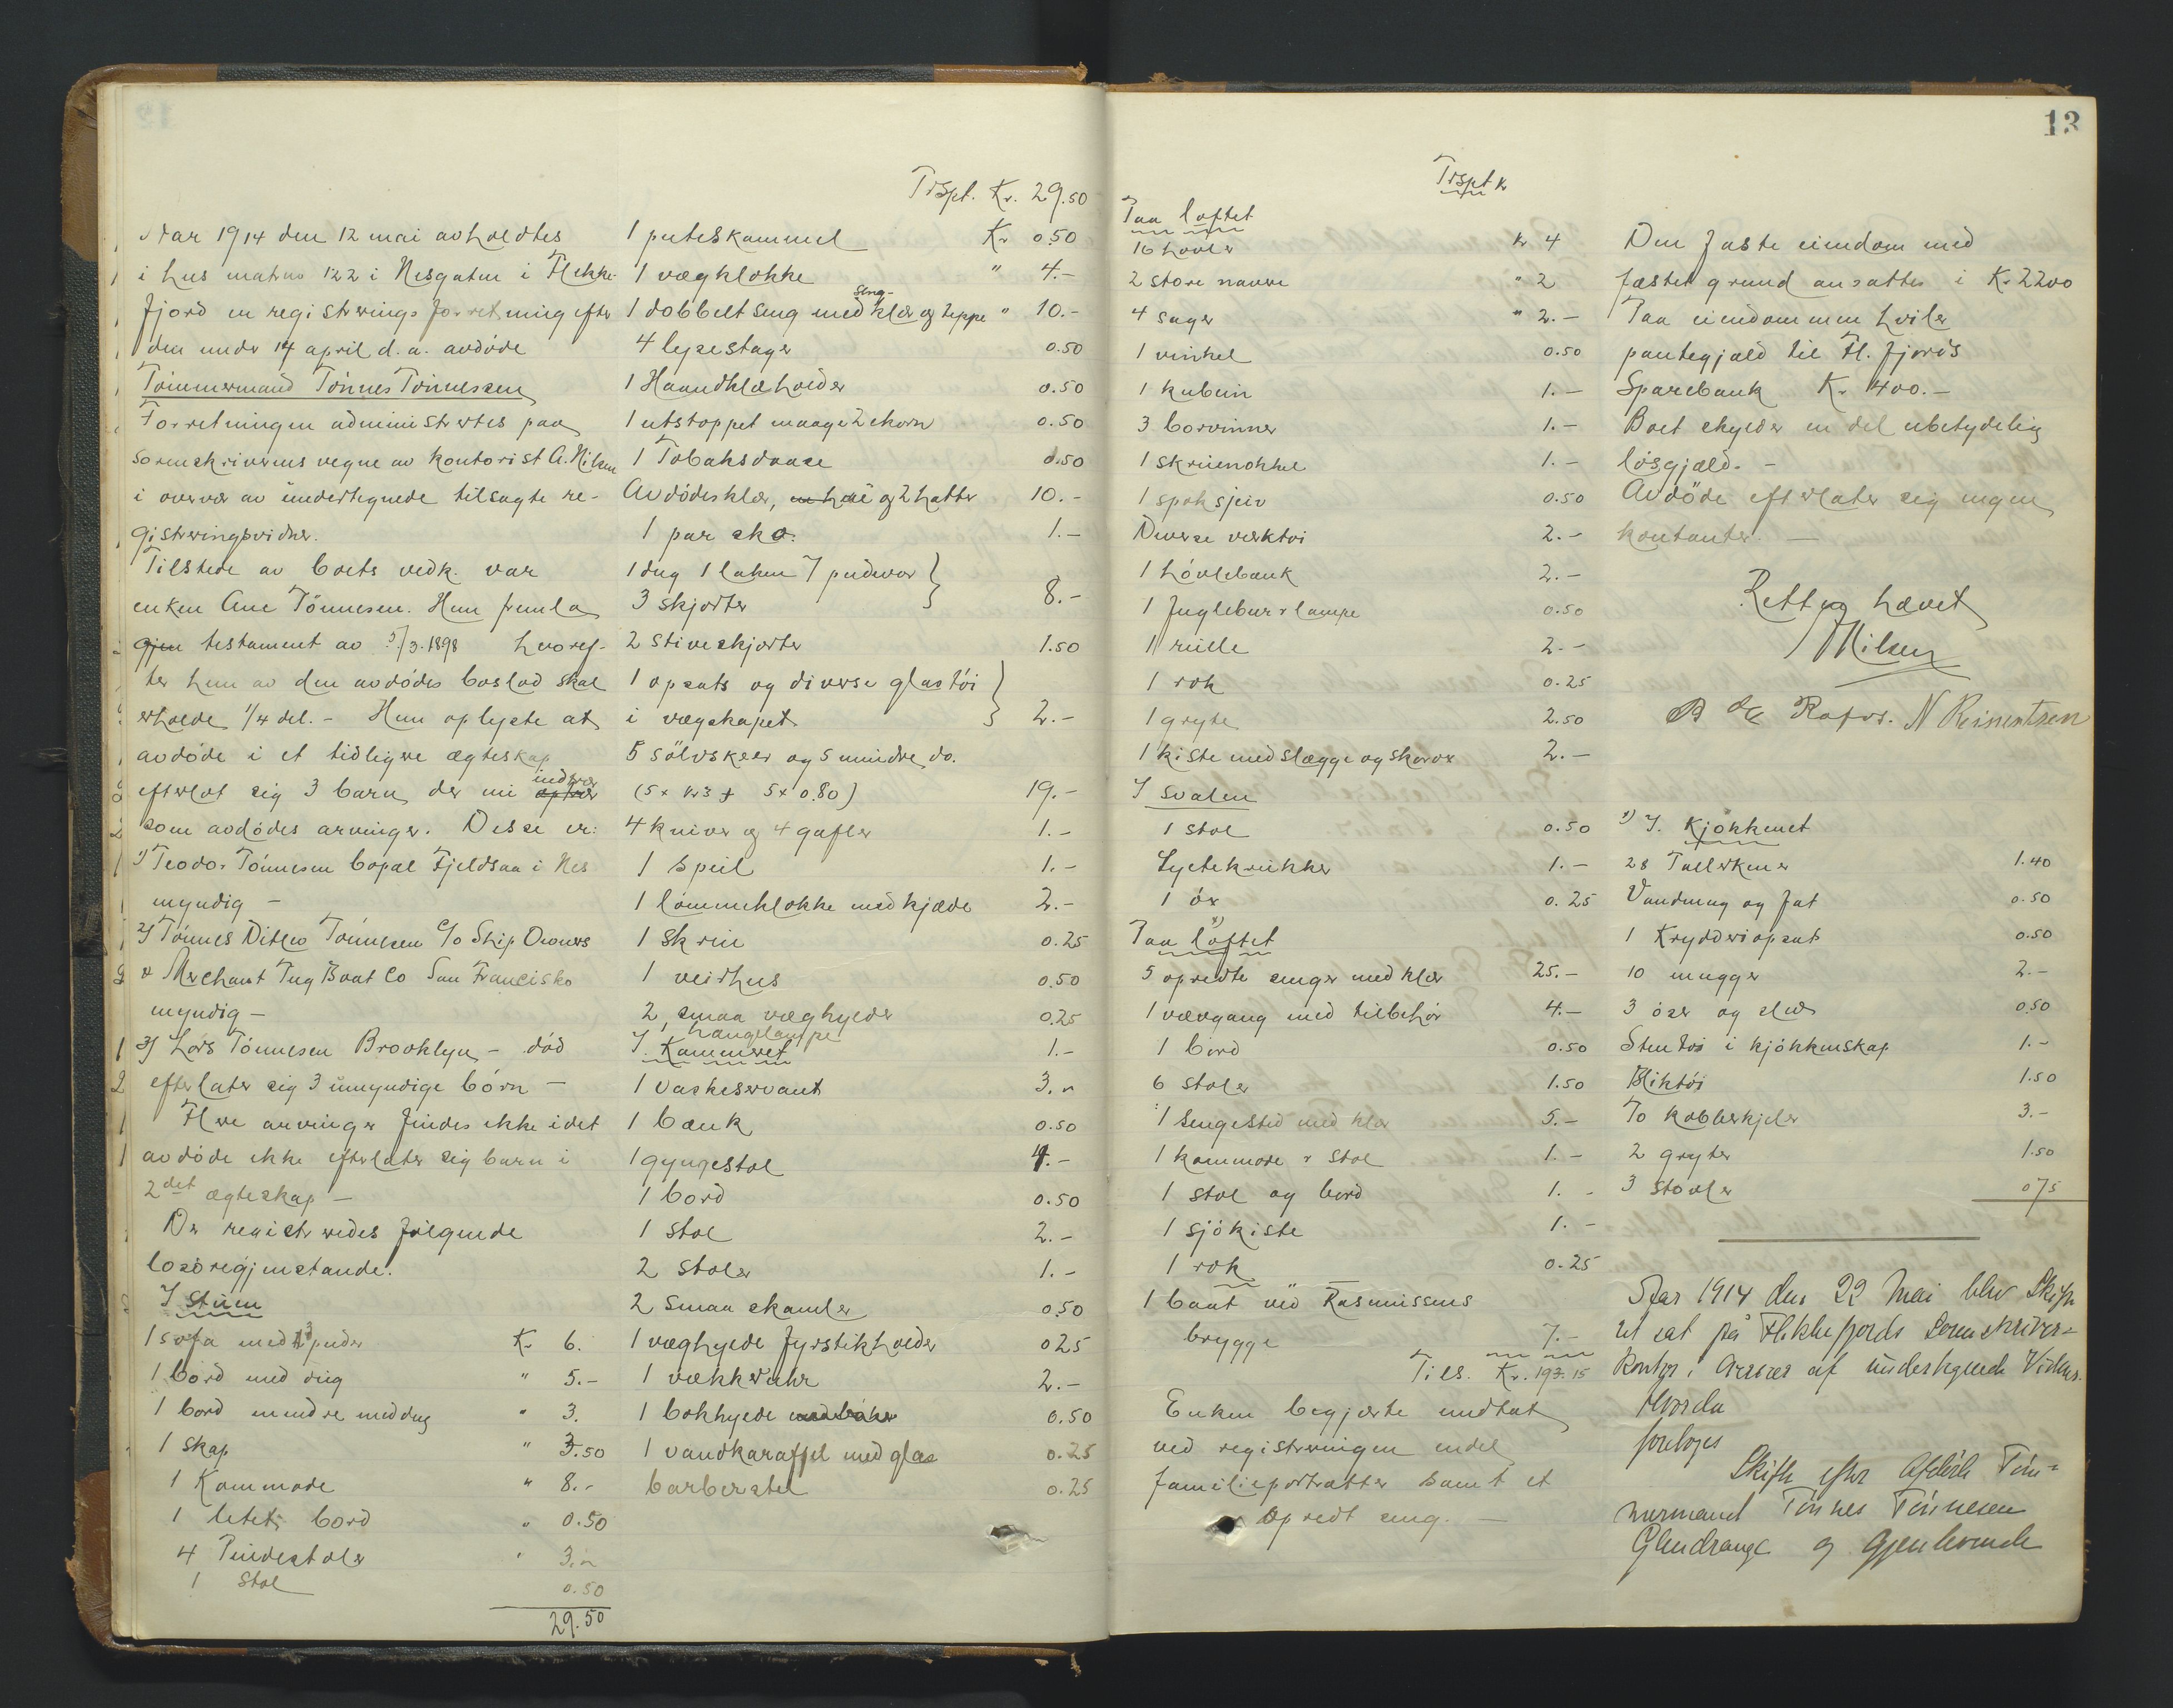 Aar 1914 den 12 mai avholdtes
i hus matr no 122 i Nesgaten i Flekke-
fjord en registreringsforretning efter
den under 14 april d.a. avdøde
Tømmermand Tønnes Tønnessen
Forretningen administrertes paa
sorenskriverens vegne av kontorist A. Nilsen
i overvær av undertegnede tilsagte re-
gistreringsvidner.
Tilstede av boets vedk. var
enken Ane Tønnesen. Hun fremla
gjen testament av 5/3.1898 hvoref-
ter hun av den avdødes boslod skal
erholde 1/4 del. - Hun oplyste at
avdøde i et tidligere ægteskap
efterlot sig 3 barn, der nu indtrær
som avdødes arvinger. Disse er:
1) Teodor Tønnesen bopæl Fjeldsaa i Nes
myndig -
2) Tønnes Ditlev Tønnesen c/o Ship Owners
& Merchant Tug Boat Co San Francisko
myndig -
3) Lars Tønnesen Brooklyn - død
efterlater sig 3 umyndige børn -
Flere arvinger findes ikke idet
avdøde ikke efterlater sig barn i
2det ægteskap -
Der registreredes følgende
løsøregjenstande.
I stuen
1 sofa med 3 puder Kr 6.
1 bord med dug " 5.-
1 bord mindre med dug " 3.
1 skap " 3.50
1 Kommode " 8.-
1 litet bord " 0.50
4 Pindestoler " 3.-
1 stol 0.50
29.50
Trspt. Kr. 29.50
1 puteskammel Kr 0.50
1 vægklokke " 4.-
1 dobbelt seng med sengklær og teppe " 10.-
4 lysestager 0.50
1 Haandklæholder 0.50
1 utstoppet maage 2 ekorn 0.50
1 Tobaksdaase 0.50
Avdødes klær, og 2 hatter 10.-
1 par sko. 1.-
1 dug 1 laken 7 pudevar
3 skjorter 8.-
2 stiveskjorter 1.50
1 opsats og diverse glastøi
i vægskapet 2.-
5 sølvskeer og 5 mindre do.
(5 x kr 3 + 5 x 0.80) 19.-
4 kniver og 4 gafler 1.-
1 speil 1.-
1 lommeklokke med kjæde 2.-
1 skrin 0.25
1 veirhus 0.50
2 smaa væghylder 0.25
1 hængelampe
I Kammeret 1.-
1 vaskeservant 3.-
1 bænk 0.50
1 gyngestol 4.-
1 bord 0.50
1 stol 2.-
2 stoler 1.-
2 smaa skamler 0.50
1 væghylde fyrstikholder 0.25
1 vækkeruhr 2.-
1 bokhylde med bøker 0.50
1 vandkaraffel med glas 0.25
barberstel 0.25
Trspt kr
Paa loftet
16 høvler kr 4
2 store navere " 2
4 sager " 2.-
1 vinkel 0.50
1 kubein 1.-
3 borvinner 1.-
1 skruenøkkel 1.-
1 spoksjeiv 0.50
Diverse verktøi 2.-
1 høvlebænk 2.-
1 fuglebur & lampe 0.50
1 rulle 2.-
1 rok 0.25
1 gryte 2.50
1 kiste med slægge og skarøx 2.-
I svalen
1 stol 0.50
Syltekrukker 1.-
1 øx 0.25
2)
Paa loftet
5 opredte senger med klær 25.-
1 vævgang med tilbehør 4.-
1 bord 0.50
6 stoler 1.50
1 sengested med klær 5.-
1 kommode & stol 1.-
1 stol og bord 1.-
1 sjøkiste 1.-
1 rok 0.25
1 baat ved Rasmussens
brygge 7.-
Tils. Kr. 193.15
Enken begjærte undtat
ved registreringen endel
familieportrætter samt et
opredt seng. -
13
Den faste eiendom med
fæstet grund ansattes i Kr 2200
Paa eiendommen hviler
pantegjæld til Fl. fjords
Sparebank Kr 400.-
Boet skylder en del ubetydelig
løsgjæld. -
Avdøde efterlater sig ingen
kontanter. -
Rett og hævet
Nilsen
N Reinertsen
1) I. Kjøkkenet
28 Tallerkener 1.40
Vandmug og fat 0.50
1 Krydderiopsats 0.50
10 mugger 2.-
3 øser og sleiv 0.50
Stentøi i kjøkkenskap 1.-
Bliktøi 1.50
To kobberkjeler 3.-
2 gryter 1.50
3 stovler 075
Aar 1914 den 22 Mai blev Skifte-
ret sat på Flekkefjords Sorenskriver-
kontor i Overvær af undertegnede Vidner.
Hvorda
foretoges
Skifte efter Afdøde Tøm-
mermand Tønnes Tønnesen
Glendrange og gjenlevende